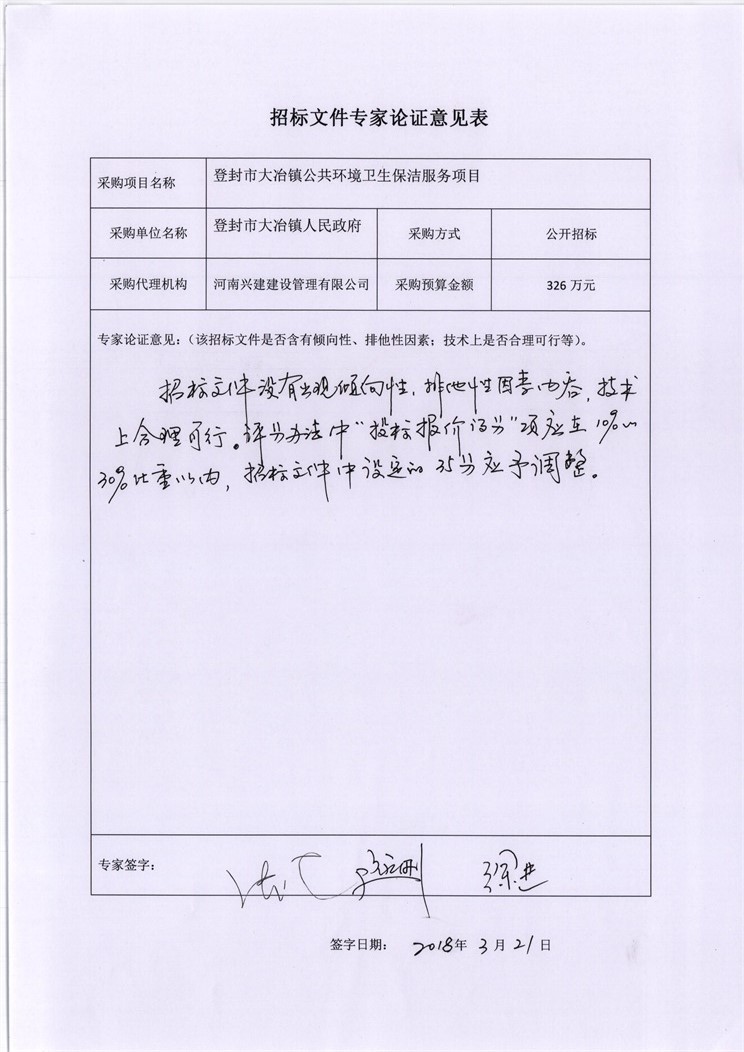 招标文件专家论证意见表
采购项目名称 登封市大冶镇公共环境卫生保洁服务项目
采购单位名称 登封市大冶镇人民政府 采购方式 公开招标
采购代理机构 河南兴建建设管理有限公司 采购预算金额 326 万元
专家论证意见：（该招标文件是否含有倾向性、排他性因素；技术上是否合理可行等）。
招标文件没有出现倾向性，排他性因素内容，技术
上合理可行。评分办法中“投标报价得分”项应在10%～
30%比重以内，招标文件中设定的35分应予调整。
专家签字：
签字日期： 2018年 3月 21日